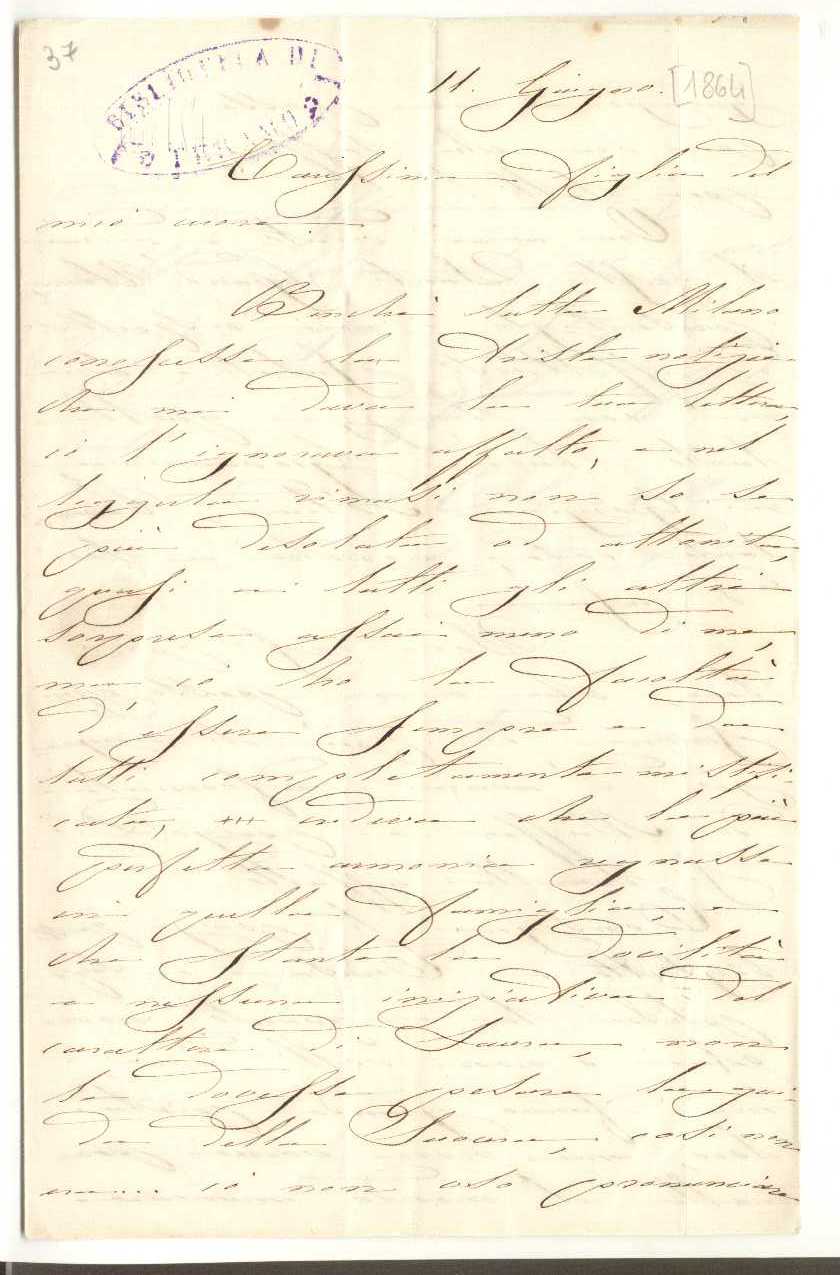 37
BIBLIOTECA DI
TERAMO
11. Giugno. [1864]
Carissima figlia del
mio cuore.
Benchè tutta Milano
conoscesse la triste notizia
che mi dava la tua lettera,
io l'ignorava affatto, e nel
leggerla rimasi non so se
più desolata od attonita,
quasi a tutti gli altri
sorpresa assai meno di me,
ma io ho la facoltà
d'essere sempre e da
tutti completamente mistifi-
cata, credeva che la più
perfetta armonia regnasse
in quella famiglia, e
che stante la docilità
e nessuna iniziativa del
carattere di Laura, non
le dovesse pesare la gui-
da della Suocera, così non
era.... io non oso pronunciare